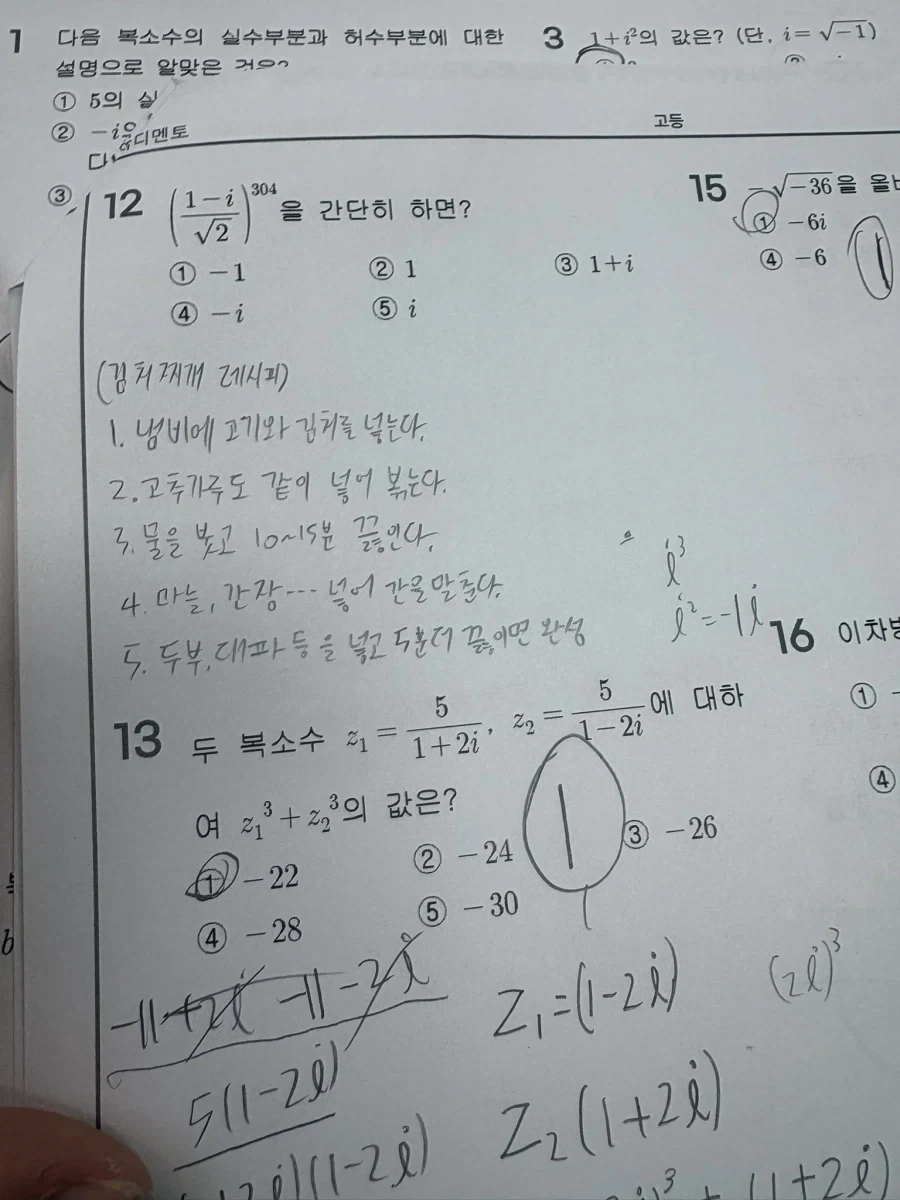 1 다음 복소수의 실수부분과 허수부분에 대한
설명으로 알맞은 것은?
① 5의 실
② -i의
③
3 1+i²의 값은? (단, i=√-1)
디멘토
고등
12 ((1-i)/√2)^304 을 간단히 하면?
① -1 ② 1 ③ 1+i
④ -i ⑤ i
(김치찌개 레시피)
1. 냄비에 고기와 김치를 넣는다.
2. 고추가루도 같이 넣어 볶는다.
3. 물을 붓고 10~15분 끓인다.
4. 마늘, 간장… 넣어 간을 맞춘다.
5. 두부, 대파 등을 넣고 5분더 끓이면 완성
i³
i²=-1i
13 두 복소수 z₁=5/(1+2i), z₂=5/(1-2i)에 대하
여 z₁³+z₂³의 값은?
① -22 ② -24 ③ -26
④ -28 ⑤ -30
1
-11+2i -11-2i
5(1-2i)
(1-2i)
Z₁=(1-2i)
(2i)³
Z₂(1+2i)
(1+2i)
15 -√-36을 올바
① -6i
④ -6
1
16 이차방
①
④